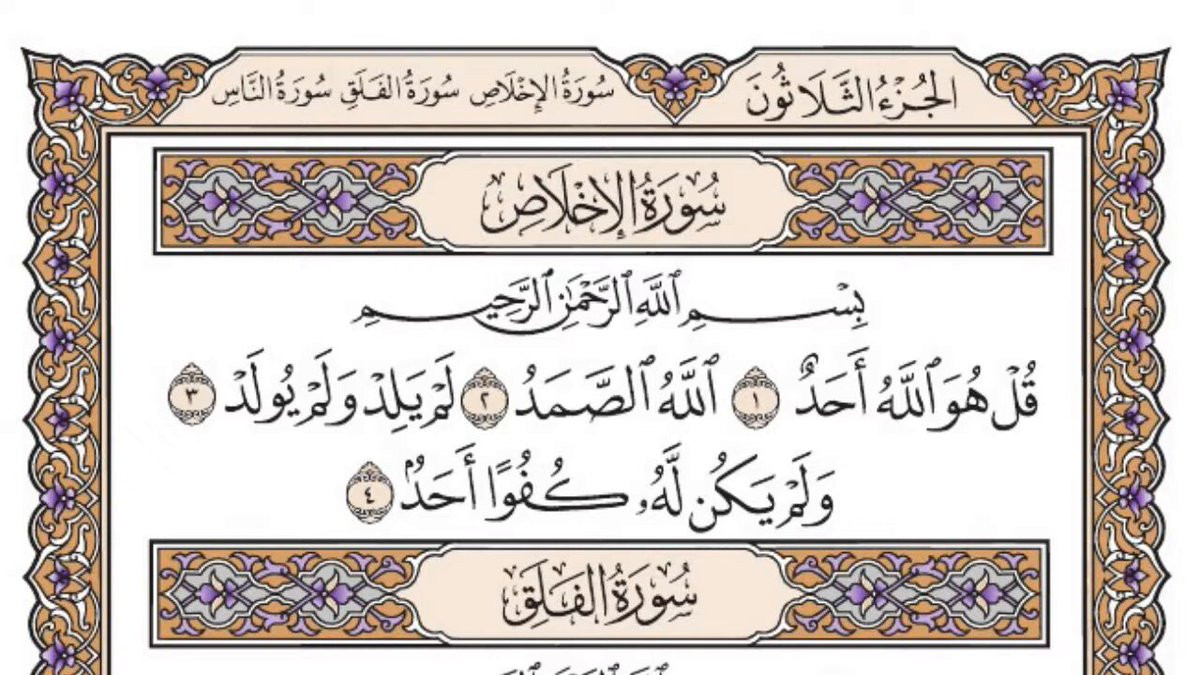 الجُزْءُ الثَّلَاثُونَ سُورَةُ الإِخْلَاصِ سُورَةُ الفَلَقِ سُورَةُ النَّاسِ
سُورَةُ الإِخْلَاصِ
بِسْمِ ٱللَّهِ ٱلرَّحْمَٰنِ ٱلرَّحِيمِ
قُلْ هُوَ ٱللَّهُ أَحَدٌ ١ ٱللَّهُ ٱلصَّمَدُ ٢ لَمْ يَلِدْ وَلَمْ يُولَدْ ٣
وَلَمْ يَكُن لَّهُۥ كُفُوًا أَحَدُۢ ٤
سُورَةُ الفَلَقِ